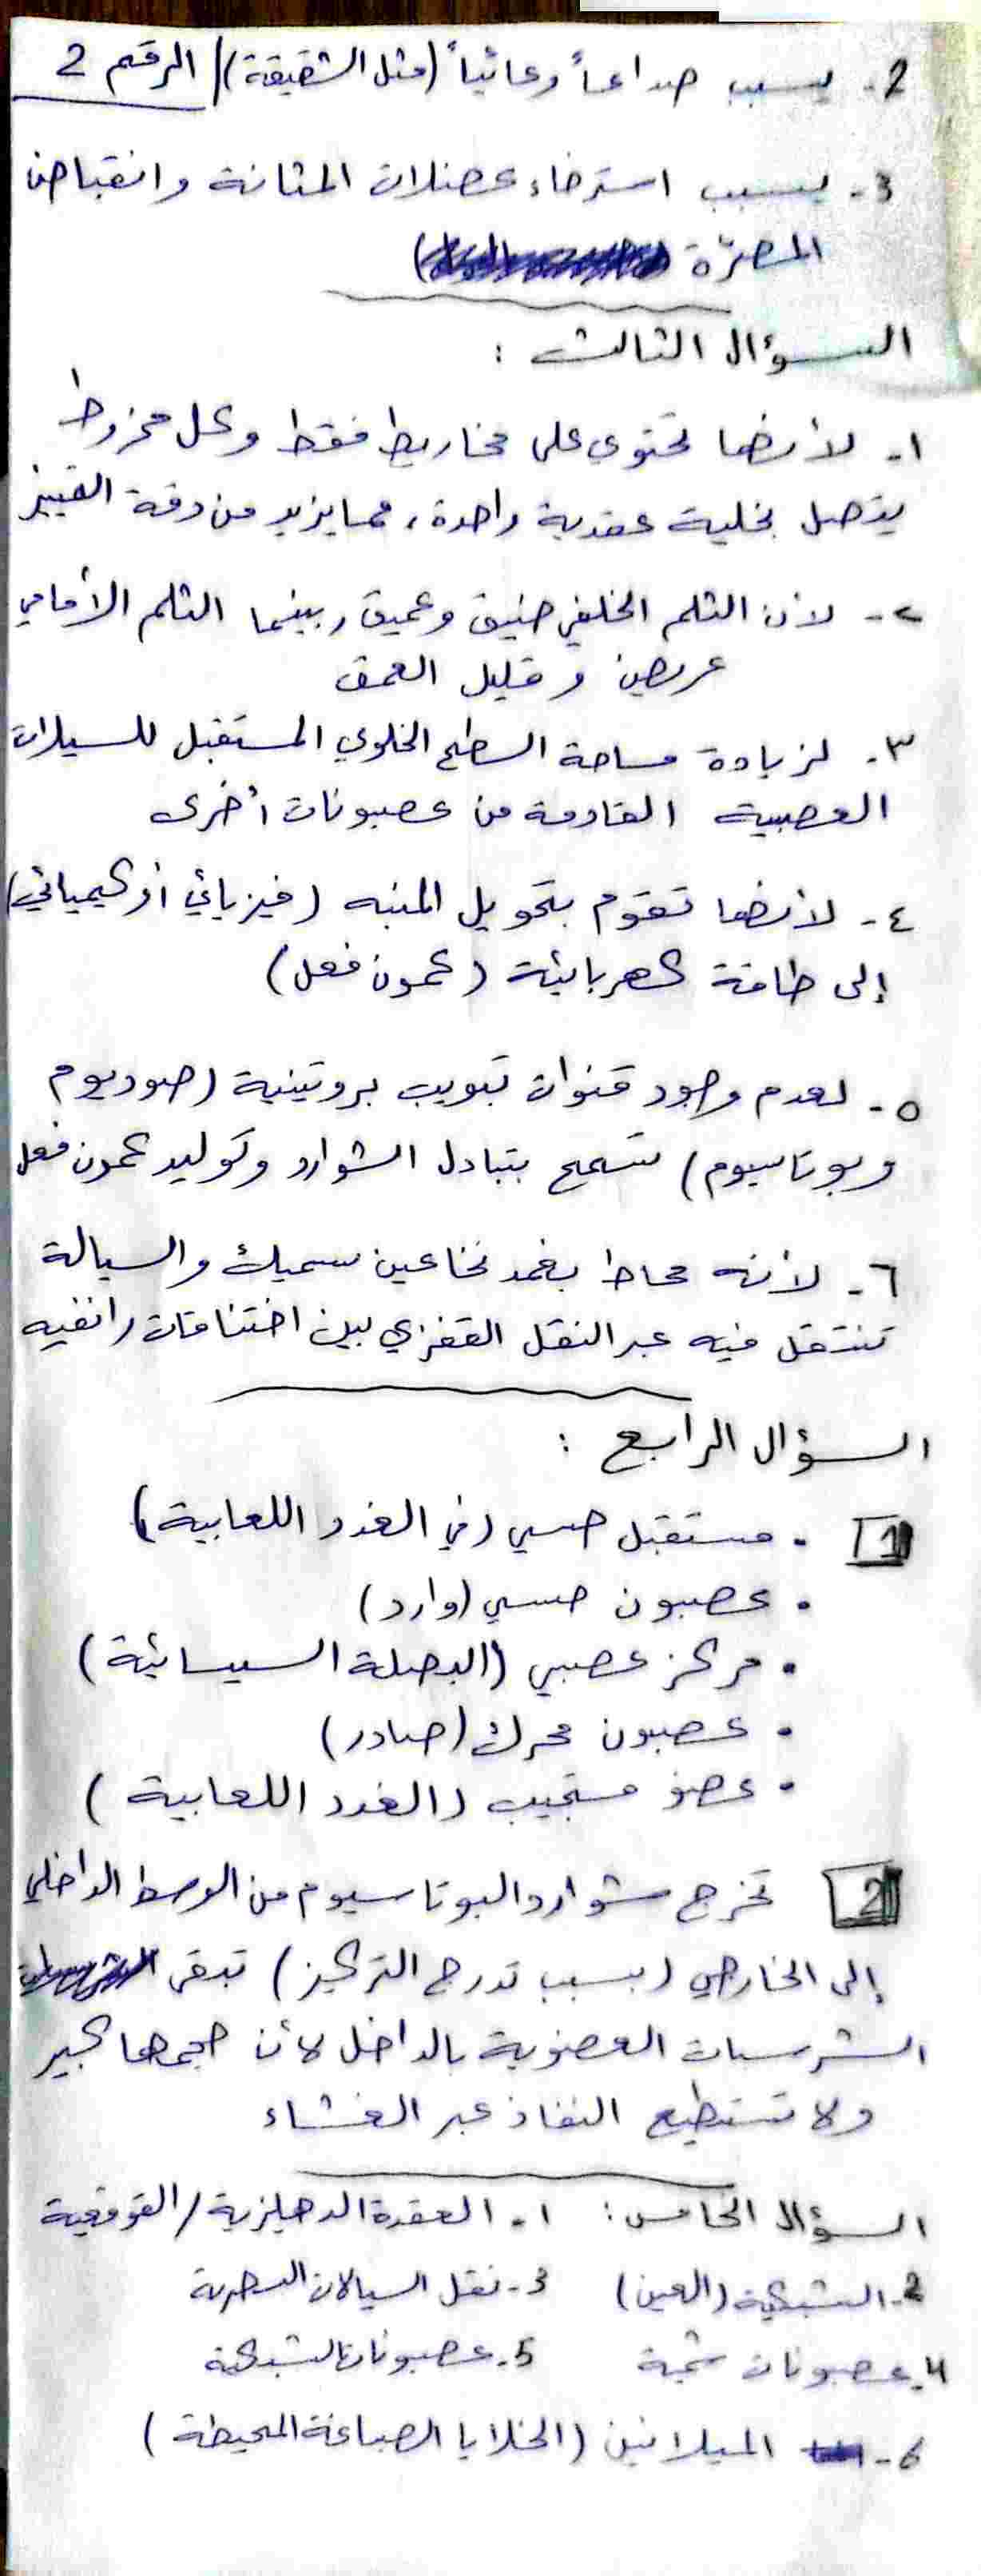 2- يسبب صداعاً وعائياً (مثل الشقيقة) / الرقم 2
3- يسبب استرخاء عضلات المثانة وانقباض
المصرّة
السؤال الثالث :
١- لأنها تحتوي على مخاريط فقط وكل مخروط
يتصل بخلية عقدية واحدة، مما يزيد من دقة التمييز
٢- لأن الثلم الخلفي ضيق وعميق، بينما الثلم الأمامي
عريض وقليل العمق
٣- لزيادة مساحة السطح الخلوي المستقبل للسيلات
العصبية القادمة من عصبونات أخرى
٤- لأنها تقوم بتحويل المنبه (فيزيائي أو كيميائي)
إلى طاقة كهربائية (كمون فعل)
٥- لعدم وجود قنوات تبويب بروتينية (صوديوم
وبوتاسيوم) تسمح بتبادل الشوارد وتوليد كمون فعل
٦- لأنه محاط بغمد نخاعين سميك والسيالة
تنتقل فيه عبر النقل القفزي بين اختناقات رانفيه
السؤال الرابع :
1 • مستقبل حسي (في الغدد اللعابية)
• عصبون حسي (وارد)
• مركز عصبي (البصلة السيسائية)
• عصبون محرك (صادر)
• عضو مستجيب (الغدد اللعابية)
2 تخرج شوارد البوتاسيوم من الوسط الداخلي
إلى الخارجي (بسبب تدرج التركيز) تبقى
الشرسبات العضوية بالداخل لأن حجمها كبير
ولا تستطيع النفاذ عبر الغشاء
السؤال الخامس: ١- العقدة الدهليزية / القوقعية
2- الشبكية (العين) 3- نقل السيالات البصرية
4- عصبونات شمية 5- عصبونات الشبكية
6- الميلانين (الخلايا الصباغية المحيطة)